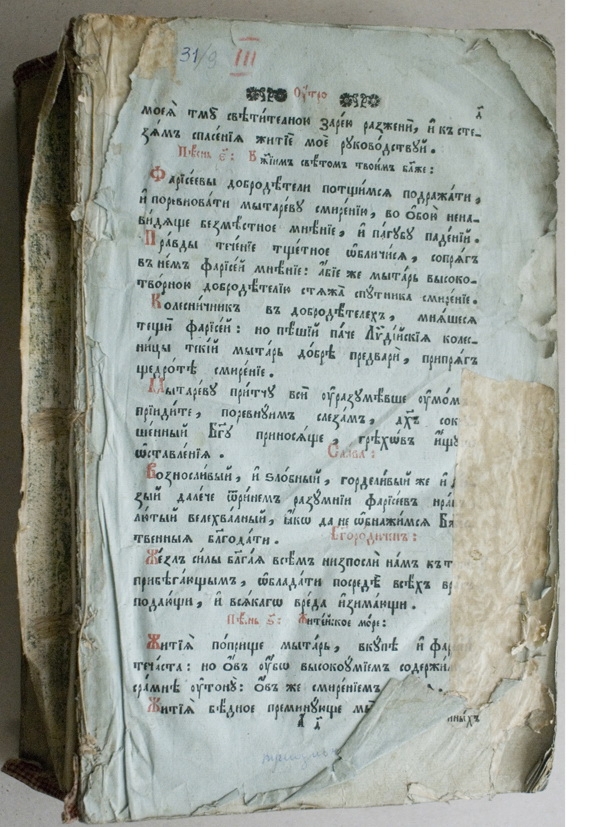 31/9 III
Оу҆́тро
моеѧ̀ тмꙋ̀ свѣти́телною заре́ю разжени̑, и҆ къ сте-
зѧ́мъ спасе́нїѧ житїѐ моѐ рꙋково́дствꙋй.
Пѣ́снь є҃: Бж҃їимъ свѣ́томъ твои́мъ бл҃же:
Фарїсе́евы добродѣ́тели потщи́мсѧ подража́ти,
и҆ поревнова́ти мытаре́вꙋ смире́нїю, во ѻ҆бо́й нена-
ви́дѧще безмѣ́стное мнѣ́нїе, и҆ па́гꙋбꙋ паде́нїй.
Пра́вды тече́нїе тще́тное ѡ҆бличи́сѧ, сопрѧ́гъ
въ не́мъ фарїсе́й мнѣ́нїе: а҆́бїе же мыта́рь высоко-
тво́рною добродѣ́телїю стѧжа̀ спꙋ́тника смире́нїе.
Колесни́чникъ въ добродѣ́телехъ, мнѧ́шесѧ
тещѝ фарїсе́й: но пѣ́шїй па́че Лѷді́йскїѧ коле-
сни́цы теки́й мыта́рь до́брѣ предварѝ, припрѧ́гъ
щедро́тѣ смире́нїе.
Мытаре́вꙋ при́тчꙋ всѝ оу҆разꙋмѣ́вше
прїиди́те, поревнꙋ́имъ слеза́мъ, дх҃ъ
ше́нный Бг҃ꙋ приносѧ́ще, грѣхѡ́въ
ѡ҆ставле́нїѧ. Сла́ва:
Возносли́вый, и҆ ѕло́бный, горделѝвый же и҆
зый дале́че ѿри́немъ разꙋ́мнїи фарїсе́евъ
лю́тый велехва́лный, ꙗ҆́кѡ да не ѡ҆бнажи́мсѧ
твенныѧ бл҃года́ти. Бг҃оро́диченъ:
Же́злъ си́лы бл҃га́ѧ всѣ́мъ низпослѝ на́мъ къ
прибѣга́ющымъ, ѡ҆блада́ти посредѣ̀ всѣ́хъ
подаю́щи, и҆ всѧ́кагѡ вре́да и҆зима́ющи.
Пѣ́снь ѕ҃: Жите́йское мо́ре:
Житїѧ̀ по́прище мыта́рь, вкꙋ́пѣ и҆
теча́ста: но ѻ҆́въ оу҆́бѡ высокоꙋ́мїемъ
сра́мнѣ оу҆тонꙋ̀: ѻ҆́въ же смире́нїемъ
Житїѧ̀ бѣ́дное преминꙋ́юще